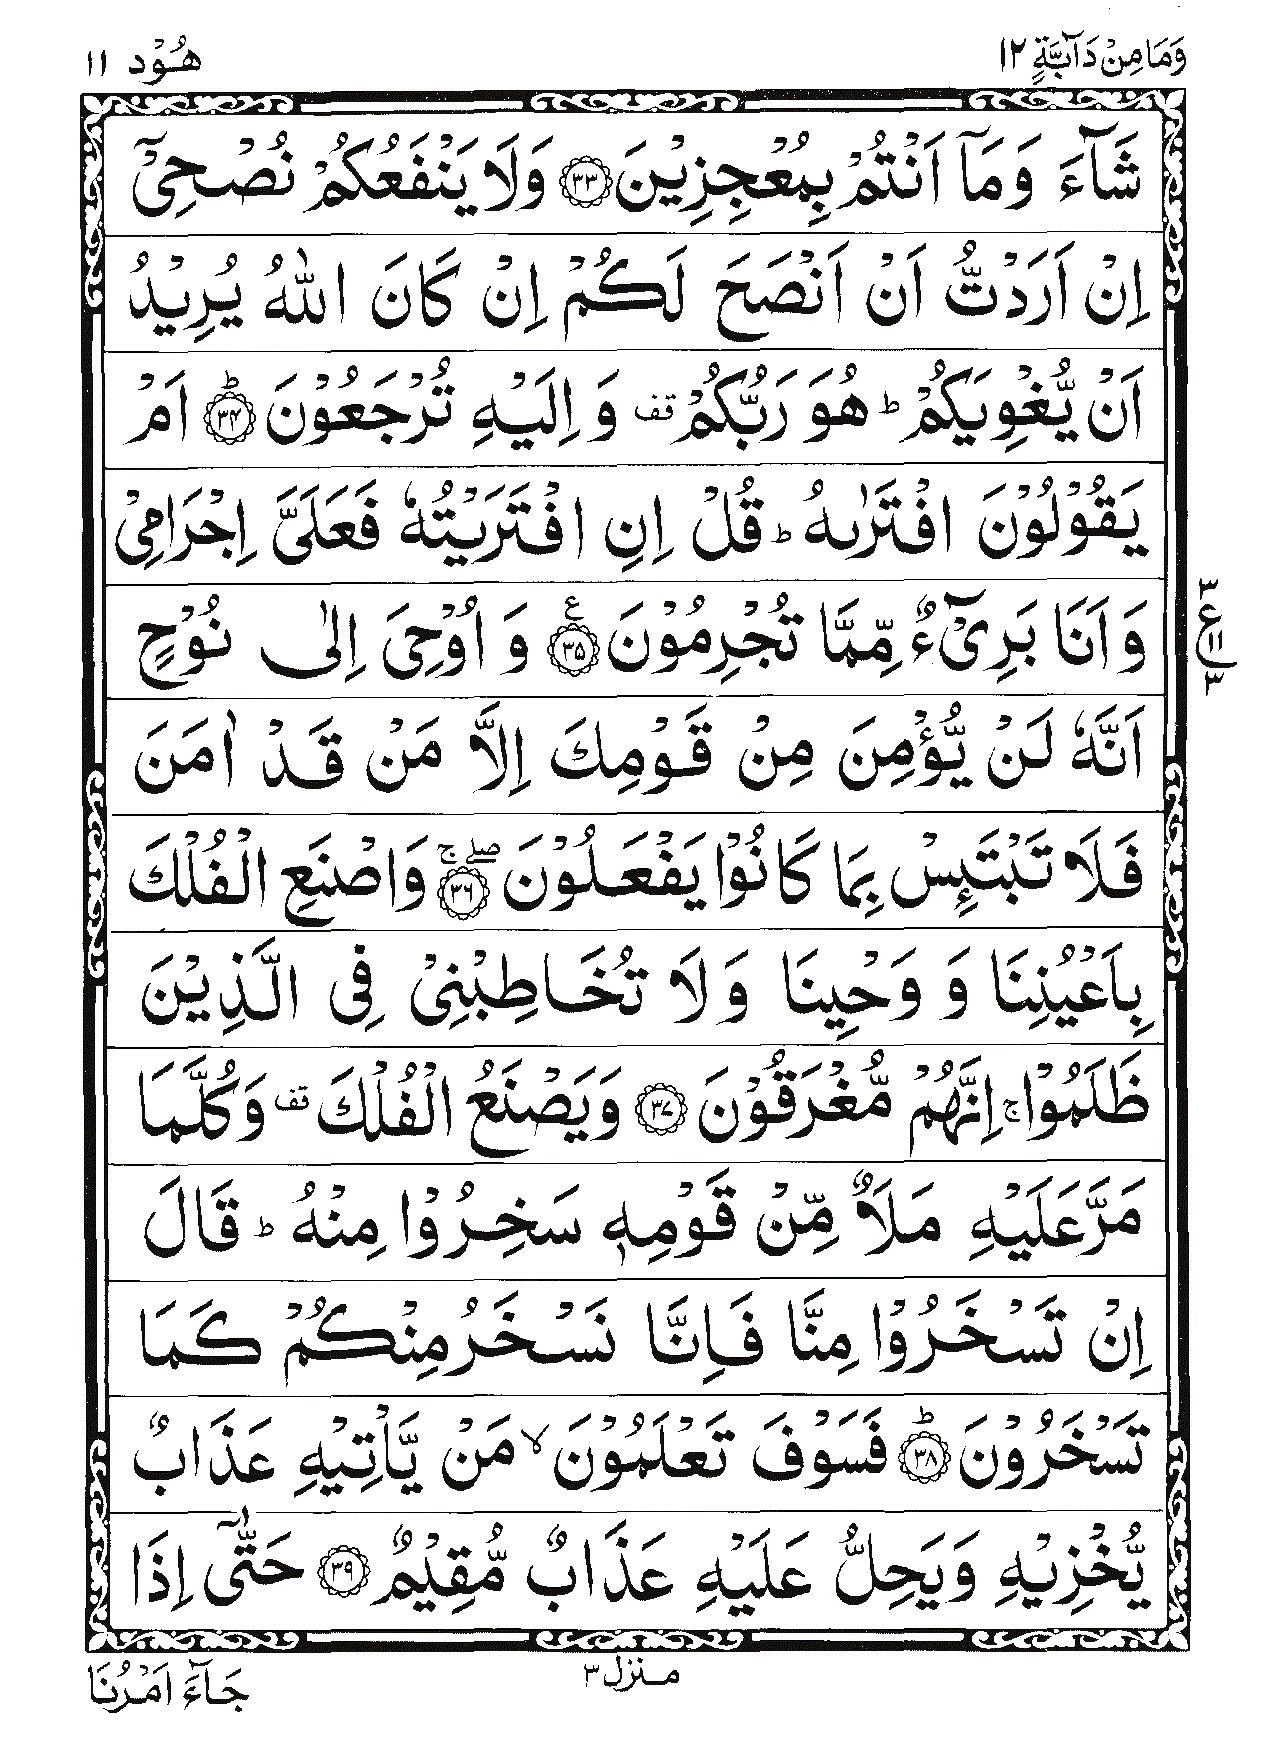 وَمَا مِنْ دَآبَّةٍ ١٢
هُوْد ١١
شَآءَ وَمَآ اَنْتُمْ بِمُعْجِزِيْنَ ٣٣ وَلَا يَنْفَعُكُمْ نُصْحِيْٓ
اِنْ اَرَدْتُّ اَنْ اَنْصَحَ لَكُمْ اِنْ كَانَ اللّٰهُ يُرِيْدُ
اَنْ يُّغْوِيَكُمْ ؕ هُوَ رَبُّكُمْ قف وَاِلَيْهِ تُرْجَعُوْنَ ؕ ٣٤ اَمْ
يَقُوْلُوْنَ افْتَرٰىهُ ؕ قُلْ اِنِ افْتَرَيْتُهٗ فَعَلَيَّ اِجْرَامِيْ
وَاَنَا بَرِيْٓءٌ مِّمَّا تُجْرِمُوْنَ ع ٣٥ وَاُوْحِيَ اِلٰى نُوْحٍ
٣ ع ١١ ٣
اَنَّهٗ لَنْ يُّؤْمِنَ مِنْ قَوْمِكَ اِلَّا مَنْ قَدْ اٰمَنَ
فَلَا تَبْتَئِسْ بِمَا كَانُوْا يَفْعَلُوْنَ صلے ج ٣٦ وَاصْنَعِ الْفُلْكَ
بِاَعْيُنِنَا وَوَحْيِنَا وَلَا تُخَاطِبْنِيْ فِي الَّذِيْنَ
ظَلَمُوْا ج اِنَّهُمْ مُّغْرَقُوْنَ ٣٧ وَيَصْنَعُ الْفُلْكَ قف وَكُلَّمَا
مَرَّ عَلَيْهِ مَلَاٌ مِّنْ قَوْمِهٖ سَخِرُوْا مِنْهُ ؕ قَالَ
اِنْ تَسْخَرُوْا مِنَّا فَاِنَّا نَسْخَرُ مِنْكُمْ كَمَا
تَسْخَرُوْنَ ؕ ٣٨ فَسَوْفَ تَعْلَمُوْنَ لا مَنْ يَّاْتِيْهِ عَذَابٌ
يُّخْزِيْهِ وَيَحِلُّ عَلَيْهِ عَذَابٌ مُّقِيْمٌ ٣٩ حَتّٰىٓ اِذَا
منزل ٣
جَآءَ اَمْرُنَا